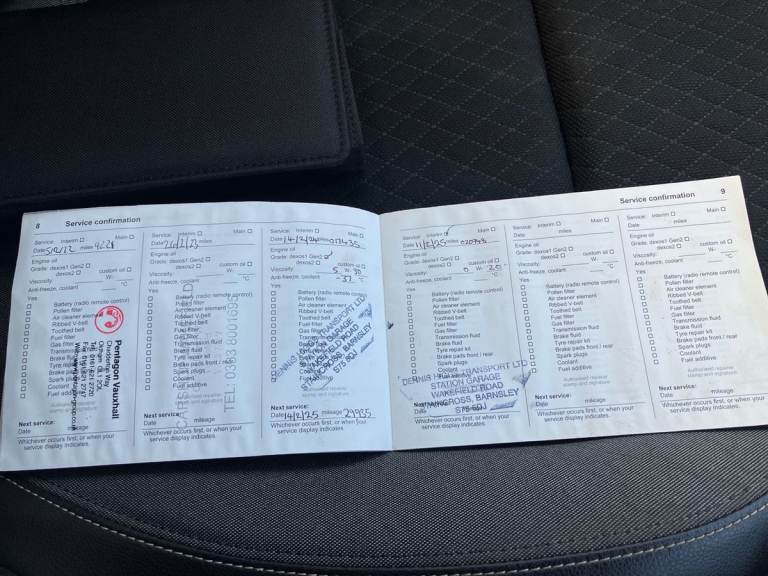 8 Service confirmation
Service: Interim Main
Date 5/12/22 miles 9621
Engine oil
Grade: dexos1 Gen2
dexos2 custom oil
Viscosity: W-
Anti-freeze, coolant °C
Yes
Battery (radio remote control)
Pollen filter
Air cleaner element
Ribbed V-belt
Toothed belt
Fuel filter
Gas filter
Brake fluid
Tyre repair kit
Spark plugs
Coolant
Fuel additive
Pentagon Vauxhall
Next service:
Date mileage
Whichever occurs first, or when your
service display indicates.
Service: Interim Main
Date 26/2/23 miles
Engine oil
Grade: dexos1 Gen2
dexos2 custom oil
Viscosity: W-
Anti-freeze, coolant °C
Yes
Battery (radio remote control)
Pollen filter
Air cleaner element
Ribbed V-belt
Toothed belt
Fuel filter
Gas filter
Transmission fluid
Brake fluid
Tyre repair kit
Brake pads front / rear
Spark plugs
Coolant
Fuel additive
Next service:
Date mileage
Whichever occurs first, or when your
service display indicates.
Service: Interim Main
Date 14/2/24 miles 017435
Engine oil
Grade: dexos1 Gen2
dexos2 custom oil
Viscosity: 5 W- 30
Anti-freeze, coolant -37 °C
Yes
Battery (radio remote control)
Pollen filter
Air cleaner element
Ribbed V-belt
Toothed belt
Fuel filter
Gas filter
Brake fluid
Tyre repair kit
Spark plugs
Coolant
Fuel additive
TRANSPORT LTD
STATION GARAGE
WAKEFIELD ROAD
BARNSLEY
S75 6DJ
Next service:
Date 14/2/25 mileage
Whichever occurs first, or when your
service display indicates.
Service confirmation 9
Service: Interim Main
Date 11/2/25 miles
Engine oil
Grade: dexos1 Gen2
dexos2 custom oil
Viscosity: 0 W- 20
Anti-freeze, coolant °C
Yes
Battery (radio remote control)
Pollen filter
Air cleaner element
Ribbed V-belt
Toothed belt
Fuel filter
Gas filter
Transmission fluid
Brake fluid
Tyre repair kit
Brake pads front / rear
Spark plugs
Coolant
DENNIS TRANSPORT LTD
STATION GARAGE
WAKEFIELD ROAD
BARNSLEY
S75 6DJ
Next service:
Date mileage
Whichever occurs first, or when your
service display indicates.
Service: Interim Main
Date miles
Engine oil
Grade: dexos1 Gen2
dexos2 custom oil
Viscosity: W-
Anti-freeze, coolant °C
Yes
Battery (radio remote control)
Pollen filter
Air cleaner element
Ribbed V-belt
Toothed belt
Fuel filter
Gas filter
Transmission fluid
Brake fluid
Tyre repair kit
Brake pads front / rear
Spark plugs
Coolant
Fuel additive
Authorised repairer
stamp and signature
Next service:
Date mileage
Whichever occurs first, or when your
service display indicates.
Service: Interim Main
Date miles
Engine oil
Grade: dexos1 Gen2
dexos2 custom oil
Viscosity: W-
Anti-freeze, coolant °C
Yes
Battery (radio remote control)
Pollen filter
Air cleaner element
Ribbed V-belt
Toothed belt
Fuel filter
Gas filter
Transmission fluid
Brake fluid
Tyre repair kit
Brake pads front / rear
Spark plugs
Coolant
Fuel additive
Authorised repairer
stamp and signature
Next service:
Date mileage
Whichever occurs first, or when your
service display indicates.